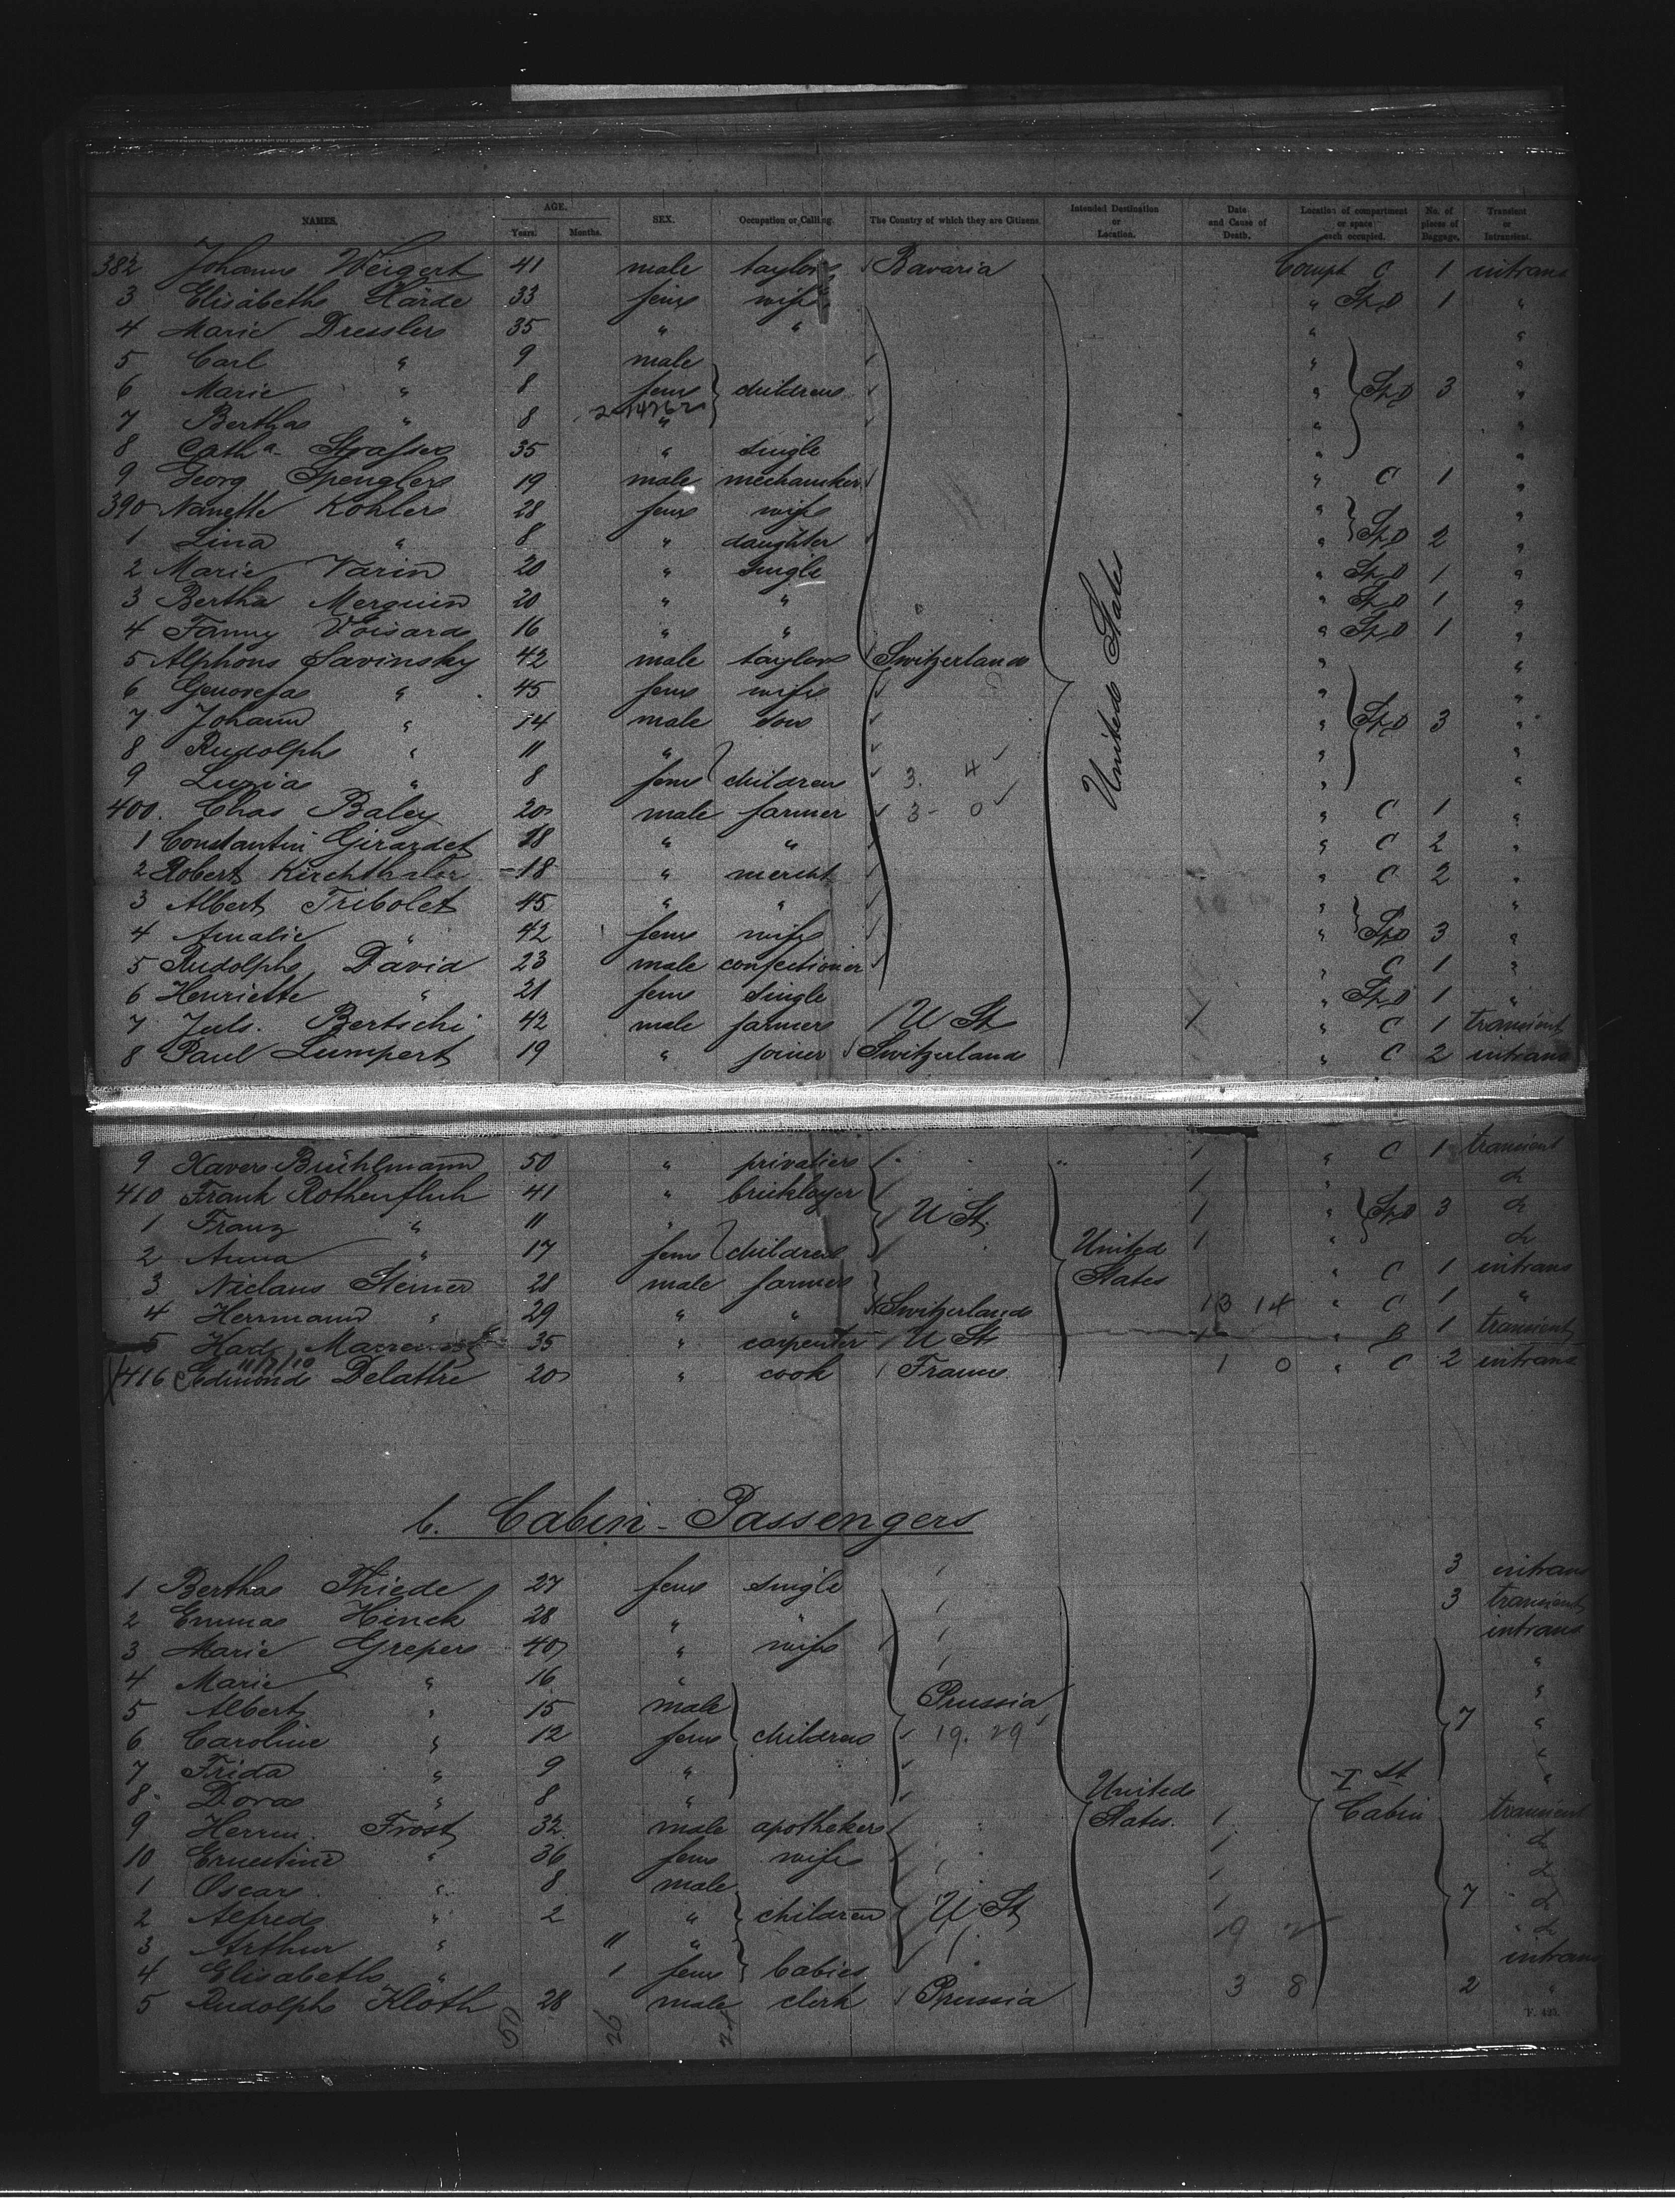 NAMES. AGE. Years. Months. SEX. Occupation or Calling. The Country of which they are Citizens. Intended Destination or Location. Date and Cause of Death. Location of compartment or space each occupied. No. of pieces of Baggage. Transient or Intransient.
382 Johann Weigert 41 male taylor Bavaria Compt C 1 intrans
3 Elisabeth Härde 33 fem wife " Sp D 1 "
4 Marie Dressler 35 " " " "
5 Carl " 9 male " "
6 Marie " 8 fem children " Sp D 3 "
7 Bertha " 8 " " "
8 Cath a Strasser 35 " single " "
9 Georg Spengler 19 male mechaniker " C 1 "
390 Nanette Kohler 28 fem wife " "
1 Lina " 8 " daughter " Sp D 2 "
2 Marie Varin 20 " single " Sp D 1 "
3 Bertha Merguin 20 " " " Sp D 1 "
4 Fanny Voisard 16 " " " Sp D 1 "
5 Alphons Savinsky 42 male taylor Switzerland United States " "
6 Genovefa " 45 fem wife " "
7 Johann " 14 male son " Sp D 3 "
8 Rudolph " 11 " " "
9 Luzia " 8 fem children 3. 4 " "
400. Chas Baley 20 male farmer 3 - 0 " C 1 "
1 Constantin Girardet 18 " " " C 2 "
2 Robert Kirchthaler 18 " mercht " C 2 "
3 Albert Tribolet 45 " " " "
4 Amalie " 42 fem wife " Sp D 3 "
5 Rudolph David 23 male confectioner " C 1 "
6 Henriette " 21 fem single " Sp D 1 "
7 Juls. Bertschi 42 male farmer U St 1 " C 1 transient
8 Paul Lumpert 19 " joiner Switzerland " C 2 intrans
9 Xaver Brühlmann 50 " privatier 1 " C 1 transient
410 Frank Rothenfluh 41 " bricklayer 1 " do
1 Franz " 11 " U St. 1 " Sp D 3 do
2 Anna " 17 fem children United 1 " do
3 Niclaus Steiner 28 male farmer States " C 1 intrans
4 Herrmann " 29 " " Switzerland 13 14 " C 1 "
5 Karl 35 " carpenter U St " B 1 transient
11/3/10
416 Edmond Delattre 20 " cook France. 1 0 " C 2 intrans
b. Cabin-Passengers
1 Bertha Thiede 27 fem single 3 intrans
2 Emma Hinck 28 " " 3 transient
3 Marie Greper 40 " wife intrans
4 Marie " 16 " "
5 Albert " 15 male Prussia "
6 Caroline " 12 fem children 19. 29 7 "
7 Frida " 9 " "
8 Dora " 8 " United I st "
9 Herrm. Frost 32 male apotheker States. 1 Cabin transient
10 Ernestine " 36 fem wife 1 do
1 Oscar " 8 male 1 do
2 Alfred " 2 " children U St 1 7 do
3 Arthur " 11 " 9 do
4 Elisabeth " 1 fem babies intrans
5 Rudolph Kloth 28 male clerk Prussia 3 8 2 "